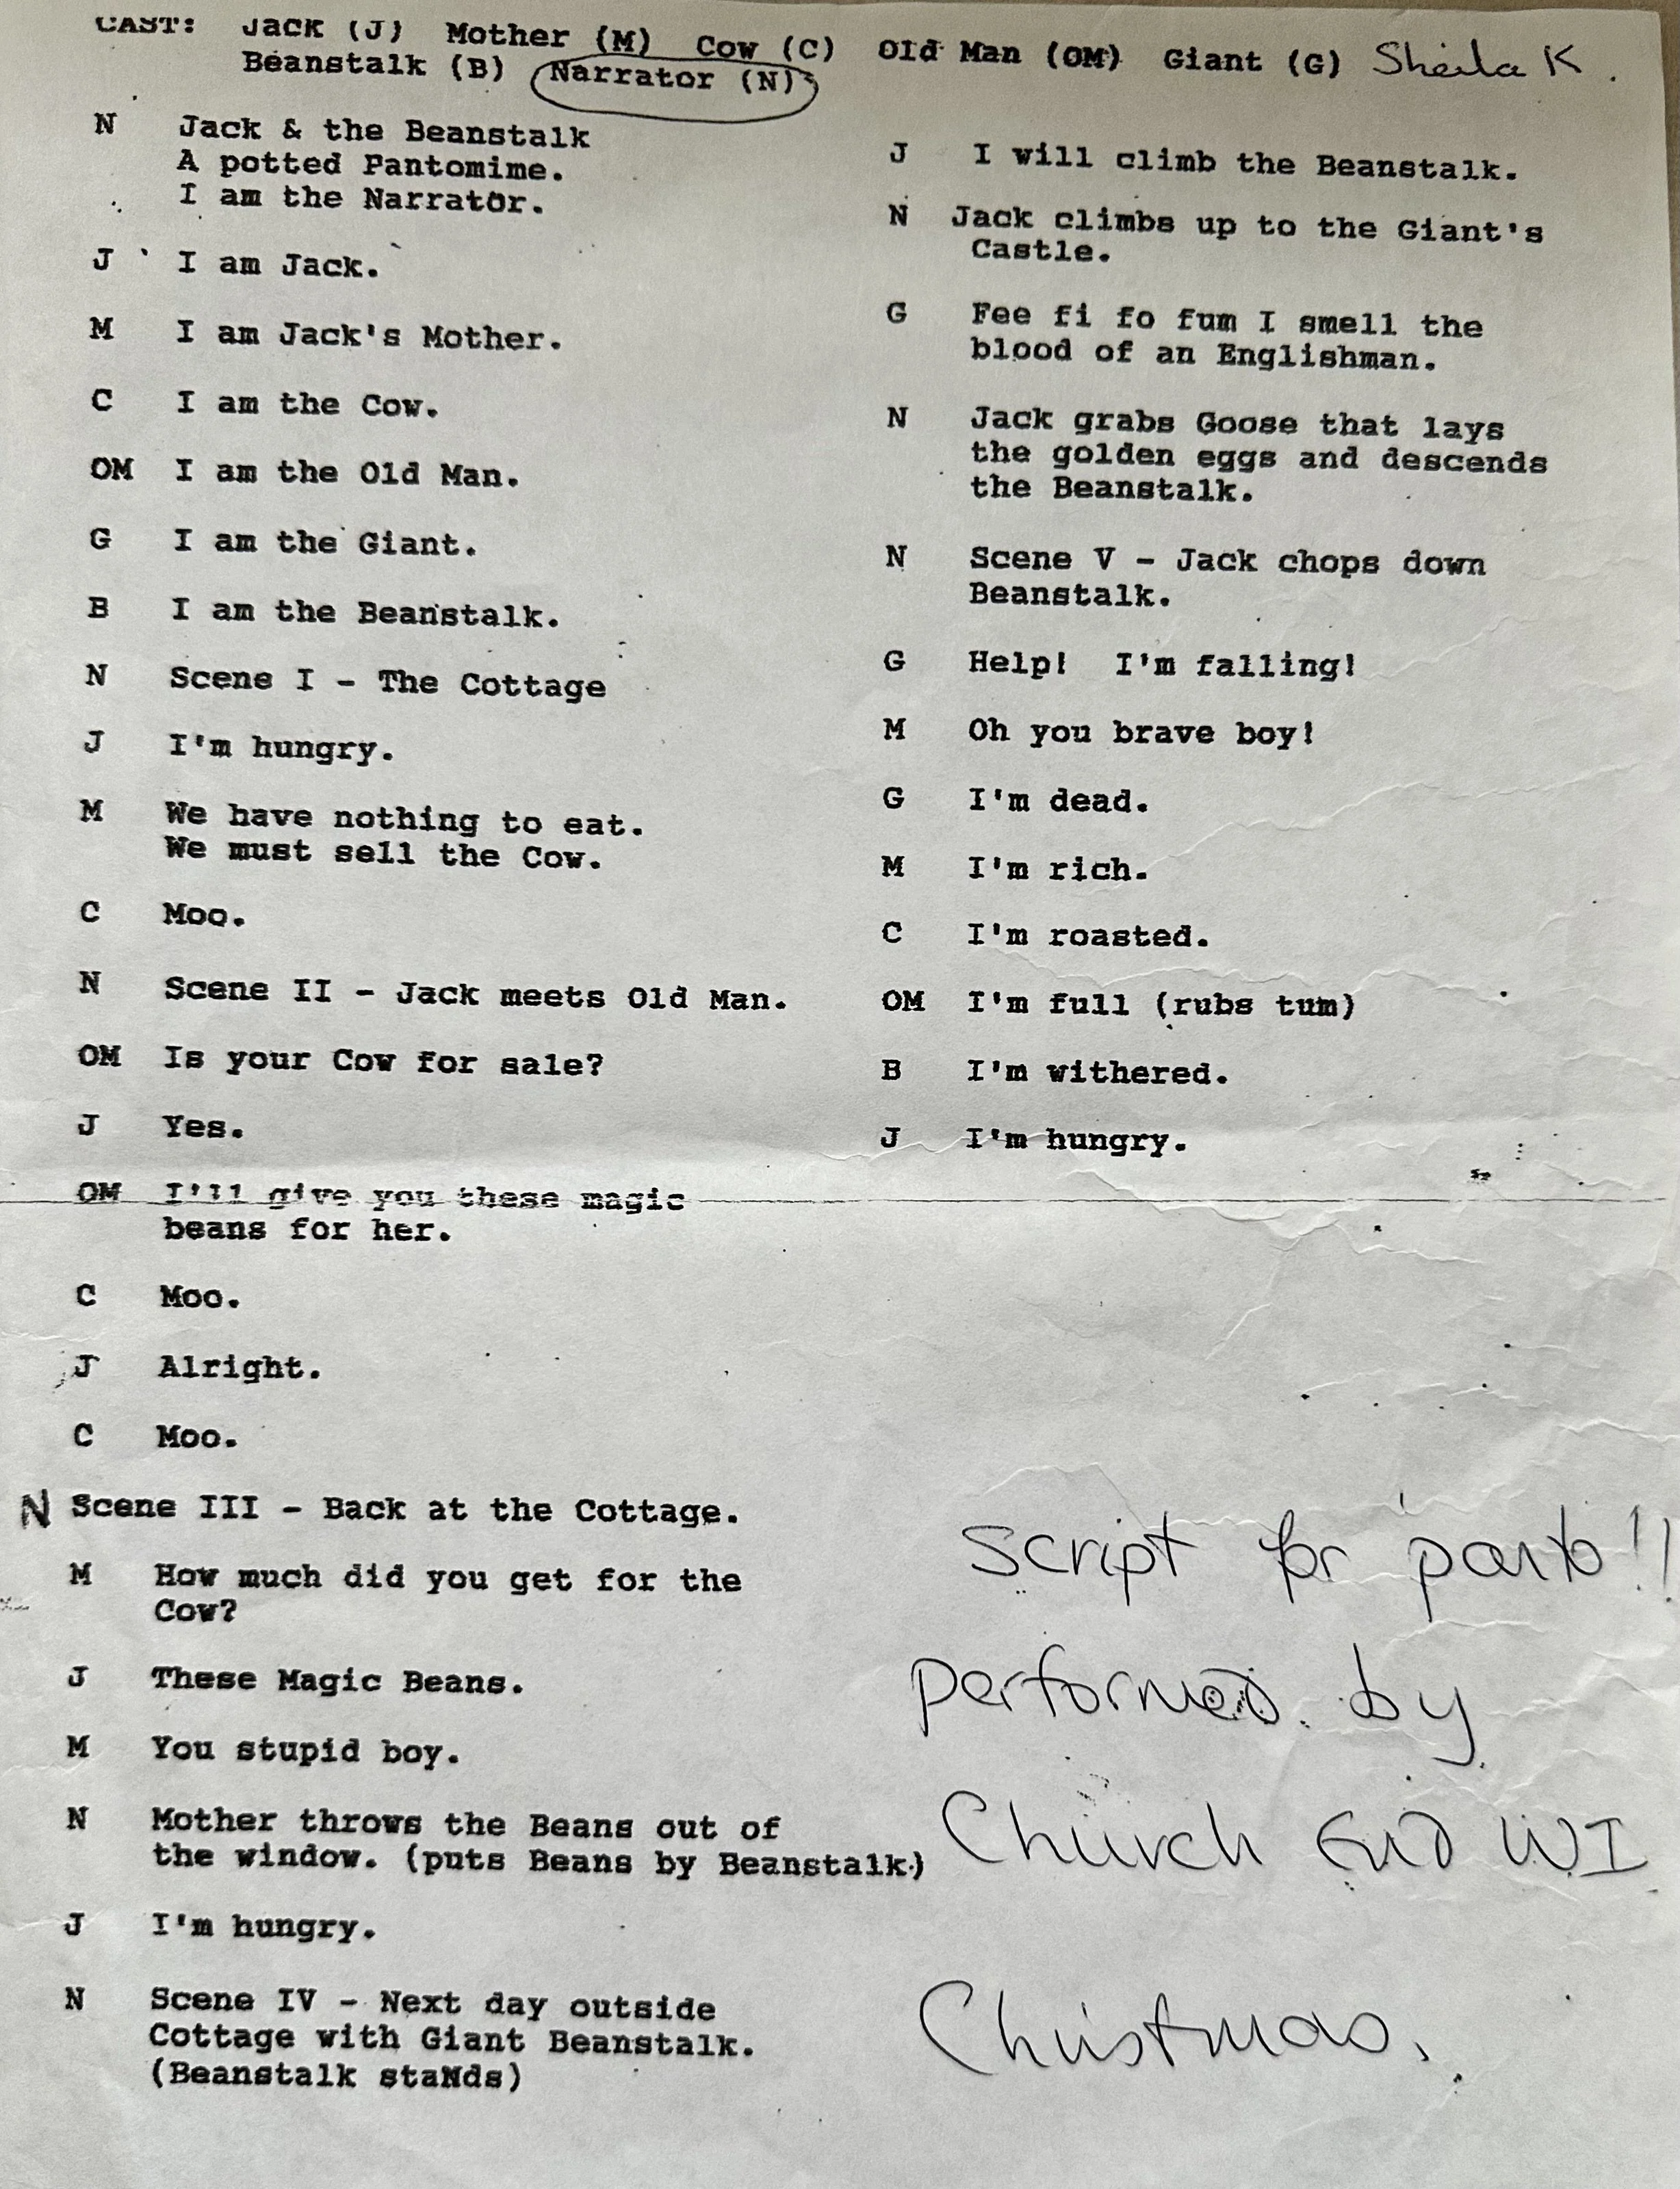 CAST: Jack (J) Mother (M) Cow (C) Old Man (OM) Giant (G) Sheila K.
Beanstalk (B) Narrator (N)
N Jack & the Beanstalk
A potted Pantomime.
I am the Narrator.
J I am Jack.
M I am Jack's Mother.
C I am the Cow.
OM I am the Old Man.
G I am the Giant.
B I am the Beanstalk.
N Scene I - The Cottage
J I'm hungry.
M We have nothing to eat.
We must sell the Cow.
C Moo.
N Scene II - Jack meets Old Man.
OM Is your Cow for sale?
J Yes.
OM I'll give you these magic
beans for her.
C Moo.
J Alright.
C Moo.
N Scene III - Back at the Cottage.
M How much did you get for the
Cow?
J These Magic Beans.
M You stupid boy.
N Mother throws the Beans out of
the window. (puts Beans by Beanstalk)
J I'm hungry.
N Scene IV - Next day outside
Cottage with Giant Beanstalk.
(Beanstalk staNds)
J I will climb the Beanstalk.
N Jack climbs up to the Giant's
Castle.
G Fee fi fo fum I smell the
blood of an Englishman.
N Jack grabs Goose that lays
the golden eggs and descends
the Beanstalk.
N Scene V - Jack chops down
Beanstalk.
G Help! I'm falling!
M Oh you brave boy!
G I'm dead.
M I'm rich.
C I'm roasted.
OM I'm full (rubs tum)
B I'm withered.
J I'm hungry.
Script for panto!!
performed by
Church End WI
Christmas.